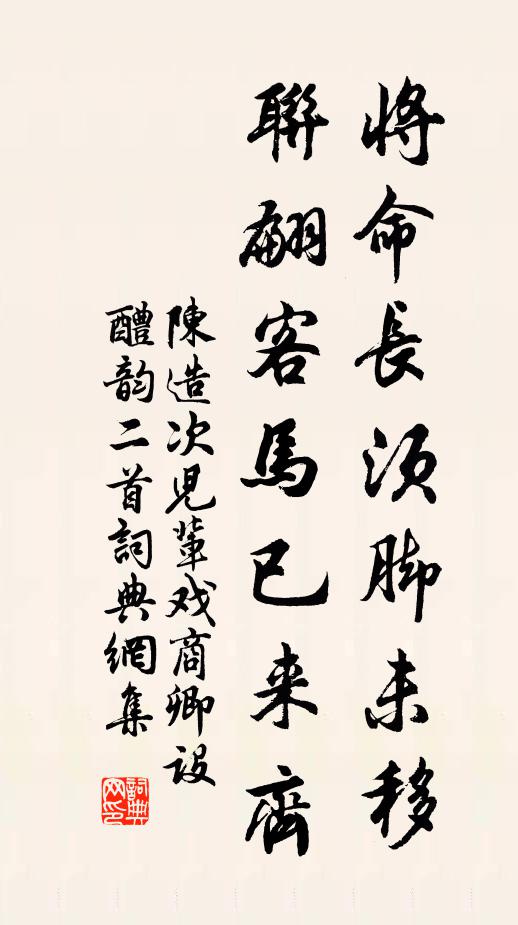 將命長須脚未移
聯翩客馬已来齊
陳造次児輩戏商卿設
醴韵二首詞典網集
詞典網印